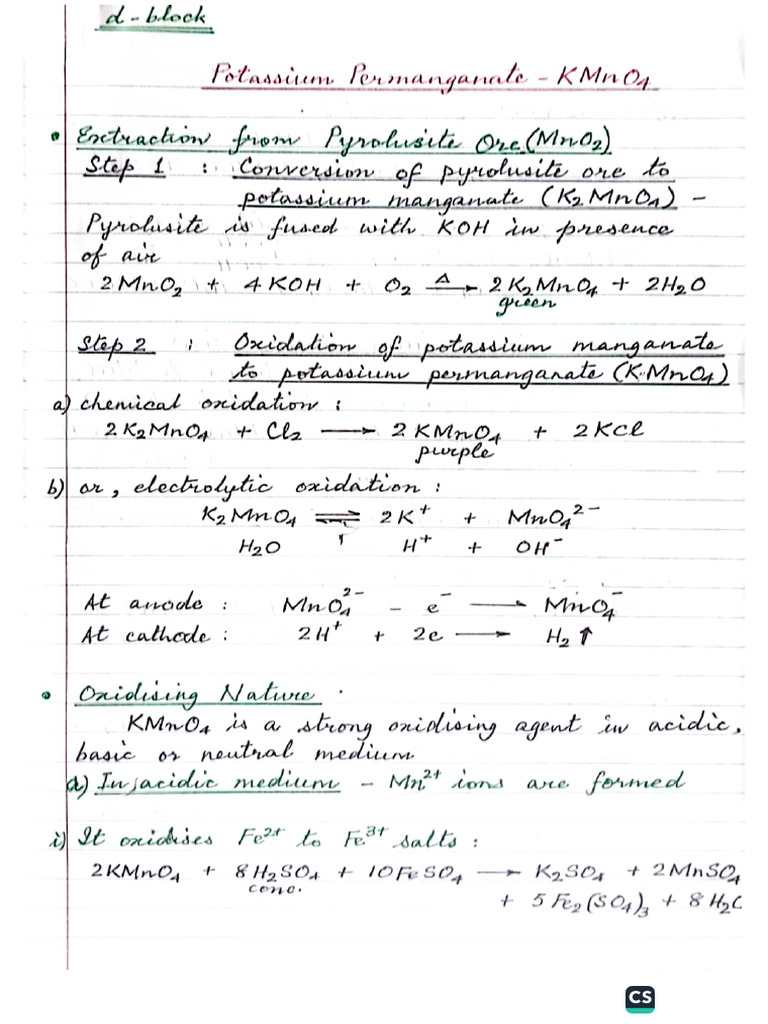 d-block
Potassium Permanganate - KMnO4
• Extraction from Pyrolusite Ore (MnO2)
Step 1 : Conversion of pyrolusite ore to
potassium manganate (K2MnO4) -
Pyrolusite is fused with KOH in presence
of air
2MnO2 + 4KOH + O2 —Δ→ 2K2MnO4 + 2H2O
green
Step 2 : Oxidation of potassium manganate
to potassium permanganate (KMnO4)
a) chemical oxidation :
2K2MnO4 + Cl2 → 2KMnO4 + 2KCl
purple
b) or, electrolytic oxidation :
K2MnO4 ⇌ 2K⁺ + MnO4²⁻
H2O H⁺ + OH⁻
At anode : MnO4²⁻ - e⁻ → MnO4⁻
At cathode : 2H⁺ + 2e → H2↑
• Oxidising Nature .
KMnO4 is a strong oxidising agent in acidic,
basic or neutral medium
a) In acidic medium - Mn²⁺ ions are formed
i) It oxidises Fe²⁺ to Fe³⁺ salts :
2KMnO4 + 8H2SO4 + 10FeSO4 → K2SO4 + 2MnSO4
conc.
+ 5Fe2(SO4)3 + 8H2
CS